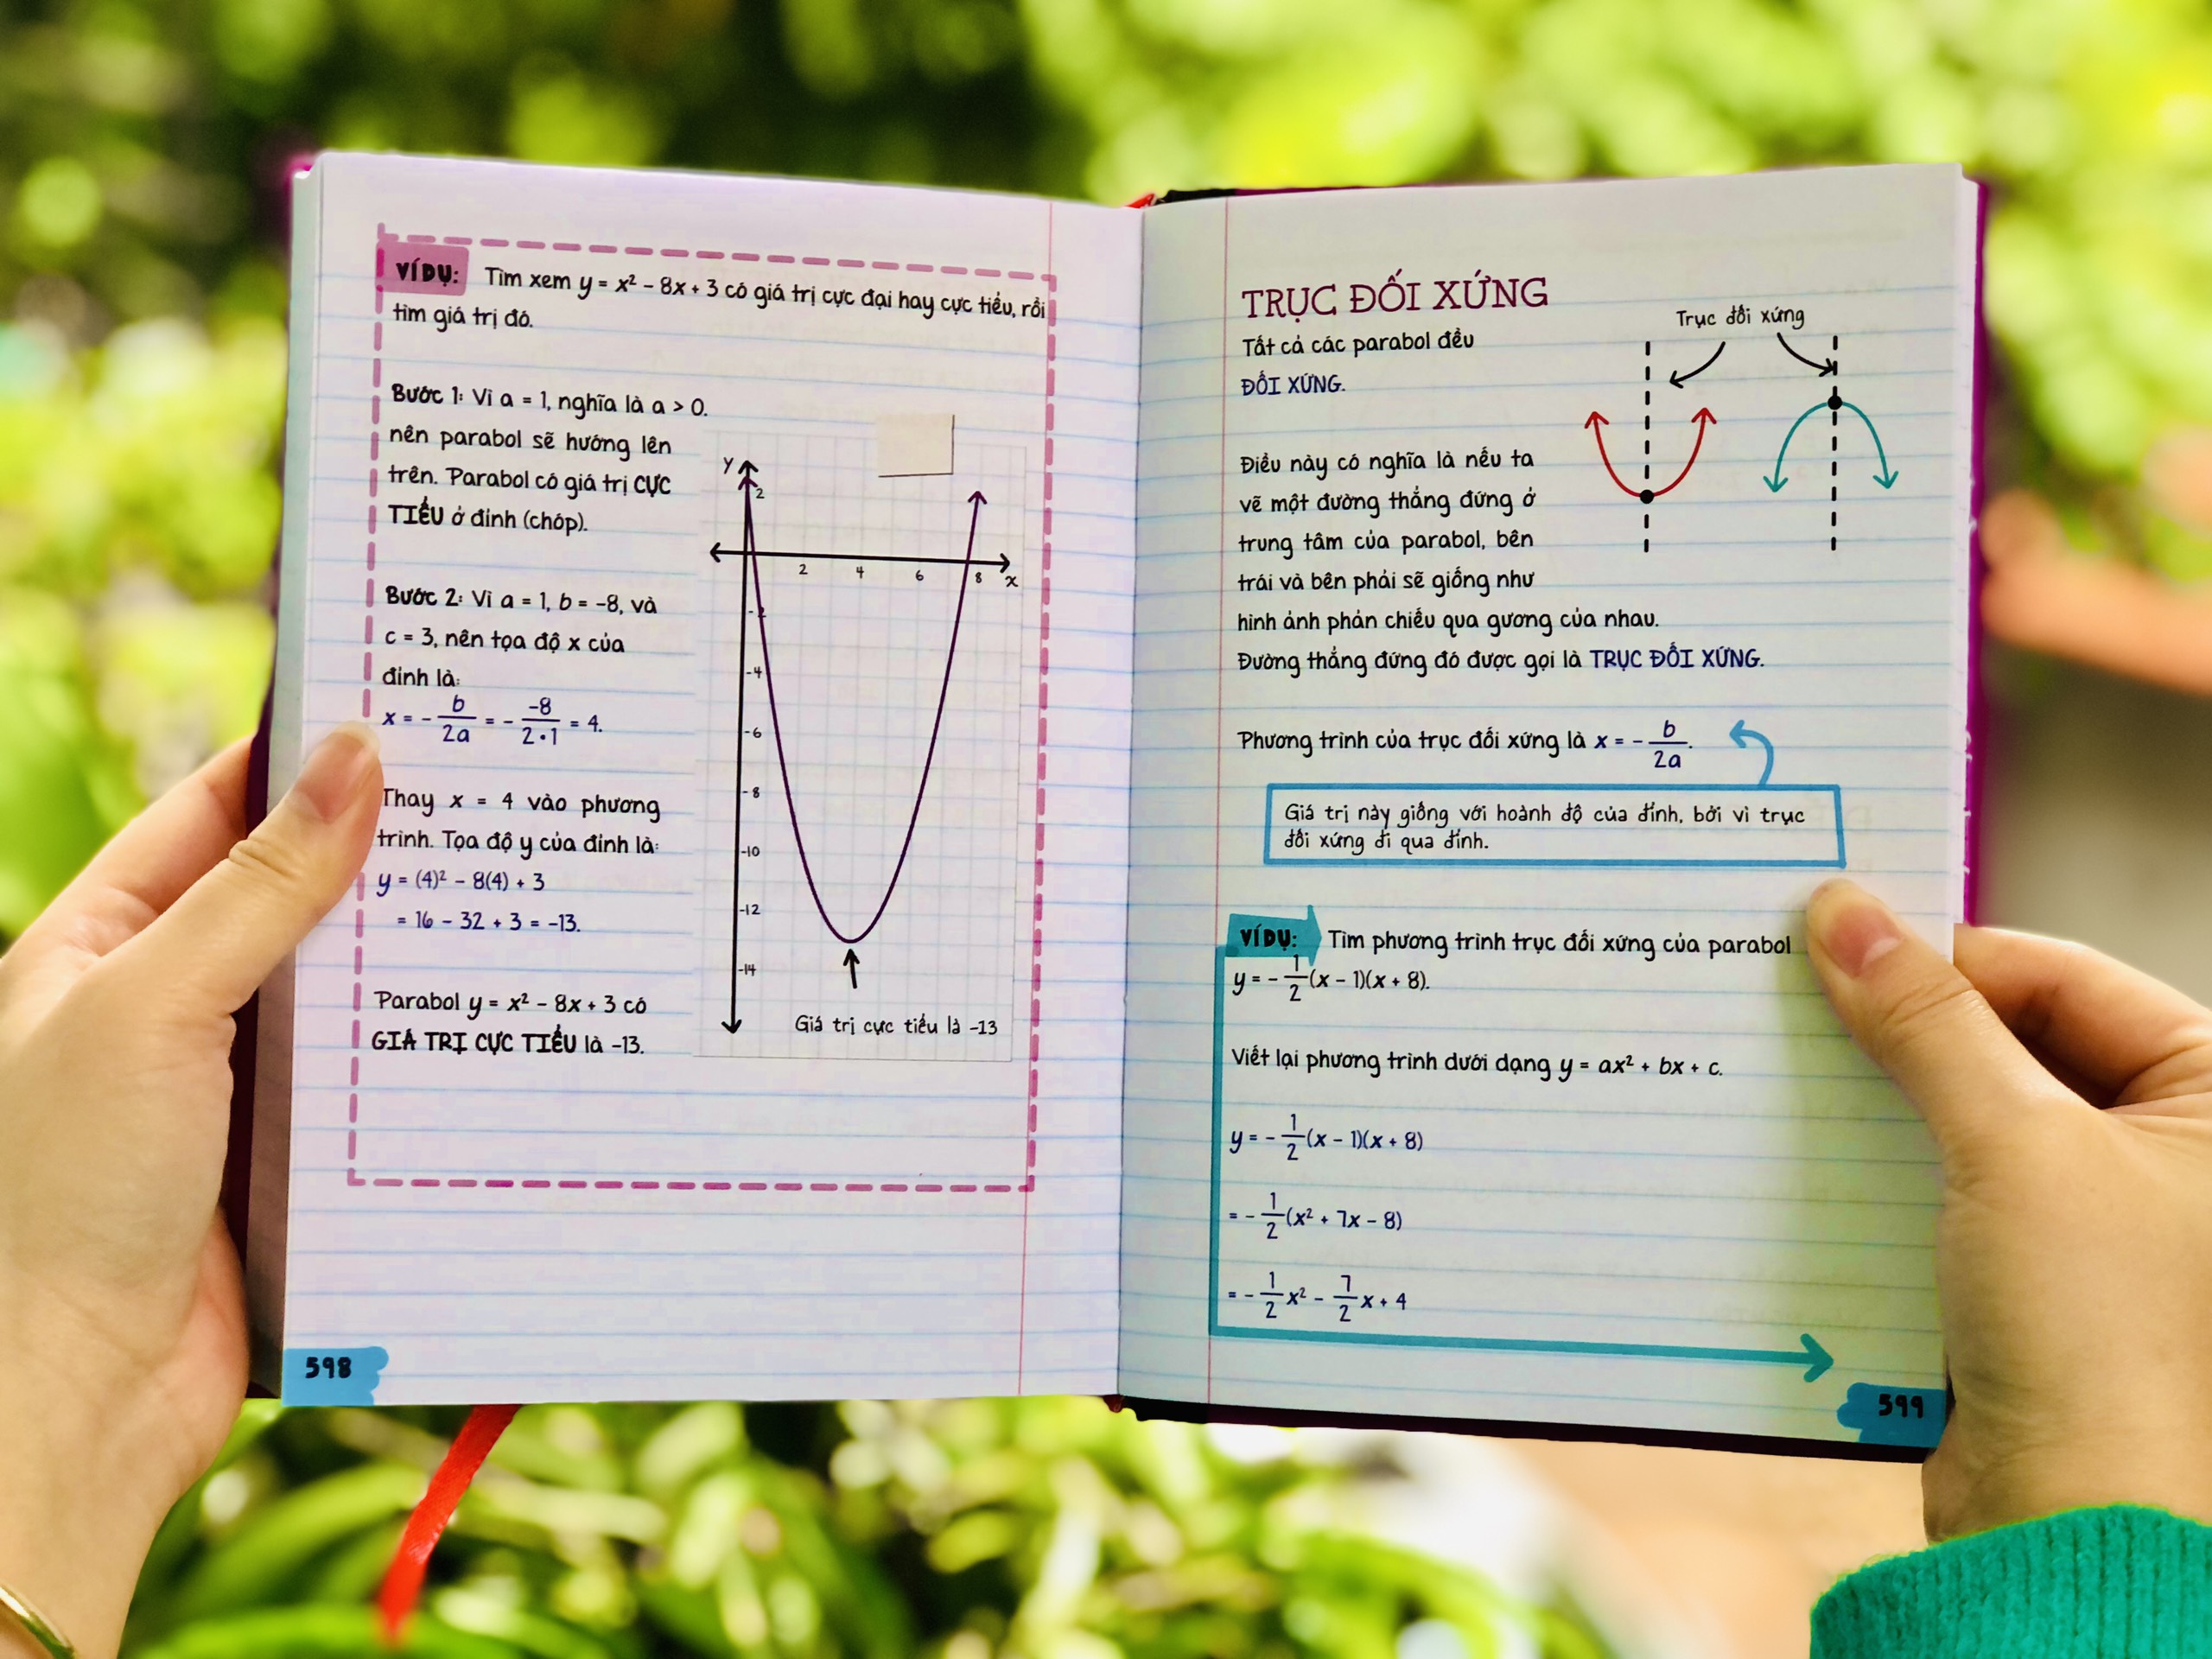 VÍ DỤ: Tìm xem y = x² – 8x + 3 có giá trị cực đại hay cực tiểu, rồi
tìm giá trị đó.
Bước 1: Vì a = 1, nghĩa là a > 0.
nên parabol sẽ hướng lên
trên. Parabol có giá trị CỰC
TIỂU ở đỉnh (chóp).
Bước 2: Vì a = 1, b = -8, và
c = 3, nên tọa độ x của
đỉnh là:
x = - b/2a = - -8/2•1 = 4.
Thay x = 4 vào phương
trình. Tọa độ y của đỉnh là:
y = (4)² – 8(4) + 3
= 16 – 32 + 3 = -13.
Parabol y = x² – 8x + 3 có
GIÁ TRỊ CỰC TIỂU là -13.
y
2
2 4 6 8 x
-2
-4
-6
-8
-10
-12
-14
Giá trị cực tiểu là -13
598
TRỤC ĐỐI XỨNG
Tất cả các parabol đều
ĐỐI XỨNG.
Trục đối xứng
Điều này có nghĩa là nếu ta
vẽ một đường thẳng đứng ở
trung tâm của parabol, bên
trái và bên phải sẽ giống như
hình ảnh phản chiếu qua gương của nhau.
Đường thẳng đứng đó được gọi là TRỤC ĐỐI XỨNG.
Phương trình của trục đối xứng là x = - b/2a.
Giá trị này giống với hoành độ của đỉnh, bởi vì trục
đối xứng đi qua đỉnh.
VÍ DỤ: Tìm phương trình trục đối xứng của parabol
y = - 1/2 (x – 1)(x + 8).
Viết lại phương trình dưới dạng y = ax² + bx + c.
y = - 1/2 (x – 1)(x + 8)
= - 1/2 (x² + 7x – 8)
= - 1/2 x² – 7/2 x + 4
599